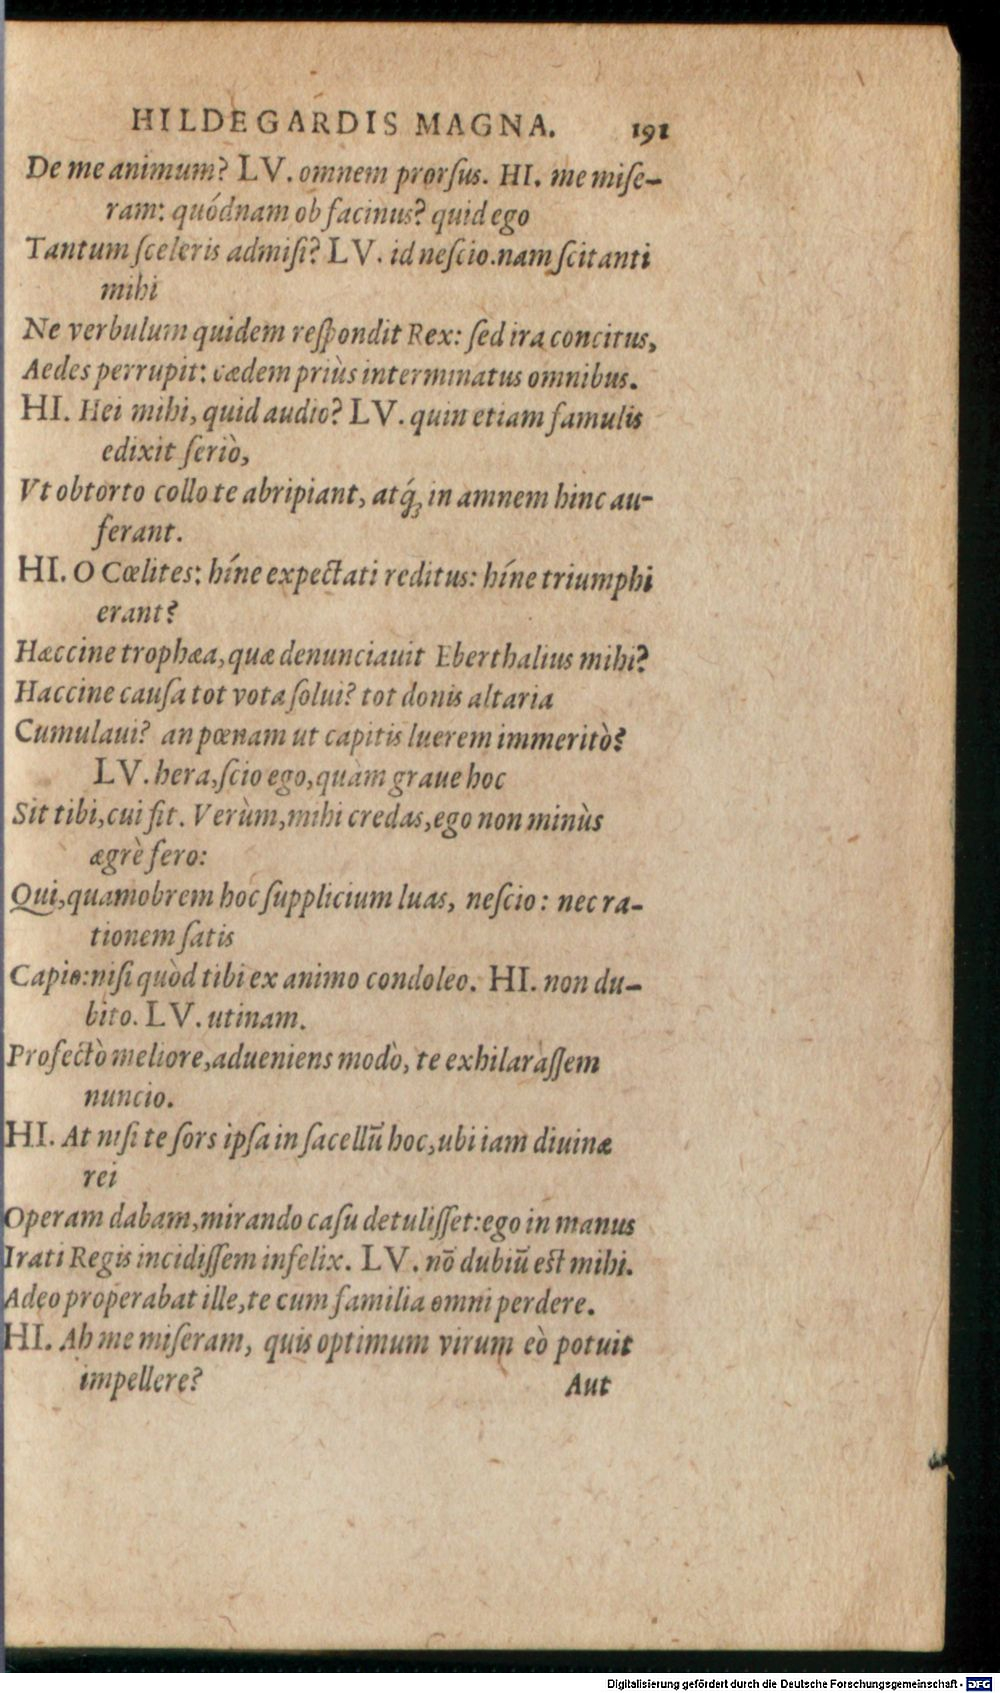 HILDEGARDIS MAGNA. 191
De me animum? LV. omnem prorſus. HI. me miſe-
ram: quódnam ob facinus? quid ego
Tantum ſceleris admiſi? LV. id neſcio. nam ſcitanti
mihi
Ne verbulum quidem reſpondit Rex: ſed ira concitus,
Aedes perrupit: cædem priùs interminatus omnibus.
HI. Hei mihi, quid audio? LV. quin etiam famulis
edixit ſeriò,
Vt obtorto collo te abripiant, atq́ꝫ in amnem hinc au-
ferant.
HI. O Cœlites: híne expectati reditus: híne triumphi
erant?
Hæccine trophæa, quæ denunciauit Eberthalius mihi?
Haccine cauſa tot vota ſolui? tot donis altaria
Cumulaui? an pœnam ut capitis luerem immeritò?
LV. hera, ſcio ego, quàm graue hoc
Sit tibi, cui ſit. Verùm, mihi credas, ego non minùs
ægrè fero:
Qui, quamobrem hoc ſupplicium luas, neſcio: nec ra-
tionem ſatis
Capio: niſi quòd tibi ex animo condoleo. HI. non du-
bito. LV. utinam.
Profectò meliore, adueniens modò, te exhilaraſſem
nuncio.
HI. At niſi te ſors ipſa in ſacellũ hoc, ubi iam diuinæ
rei
Operam dabam, mirando caſu detuliſſet: ego in manus
Irati Regis incidiſſem infelix. LV. nõ dubiũ eſt mihi.
Adeo properabat ille, te cum familia omni perdere.
HI. Ah me miſeram, quis optimum virum eò potuit
impellere? Aut
Digitalisierung gefördert durch die Deutsche Forschungsgemeinschaft - DFG